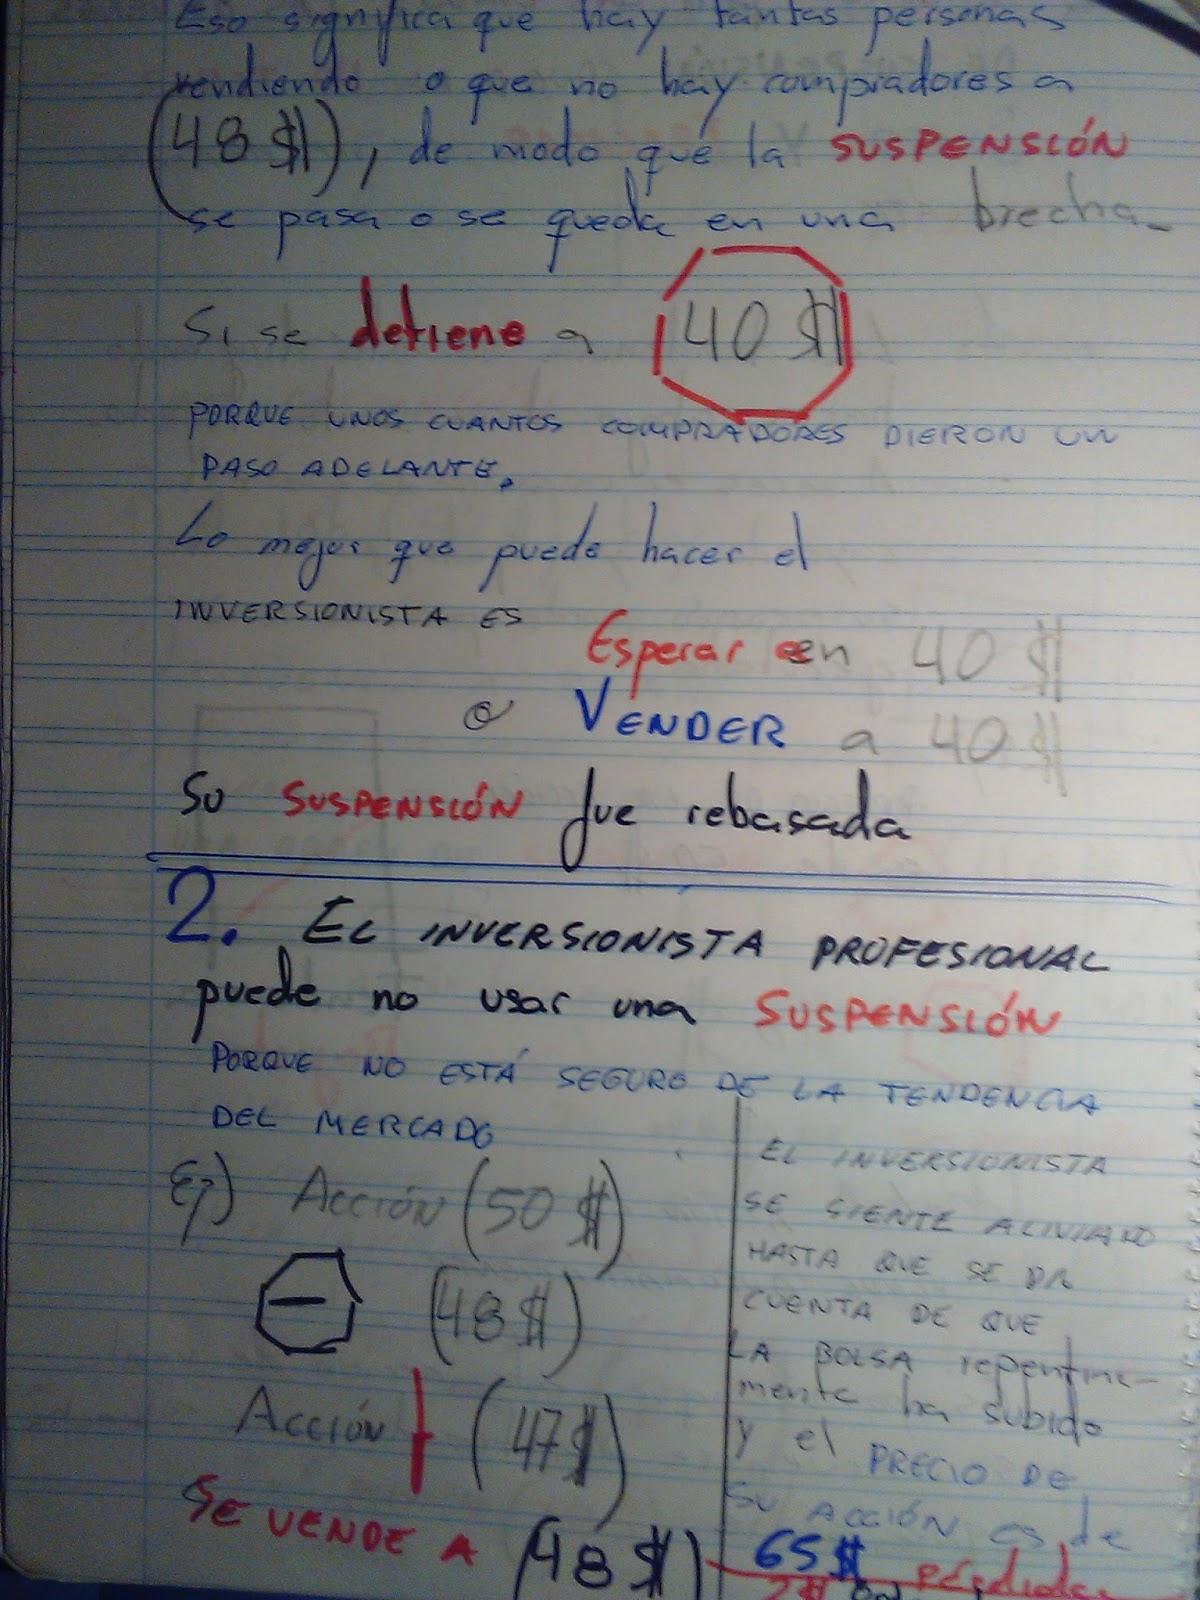 Eso significa que hay tantas personas
vendiendo o que no hay compradores a
(48 $), de modo que la SUSPENSIÓN
se pasa o se queda en una brecha.
Si se detiene a 40 $
PORQUE UNOS CUANTOS COMPRADORES DIERON UN
PASO ADELANTE.
Lo mejor que puede hacer el
INVERSIONISTA ES
Esperar en 40 $
o VENDER a 40 $
Su SUSPENSIÓN fue rebasada
2. EL INVERSIONISTA PROFESIONAL
puede no usar una SUSPENSIÓN
PORQUE NO ESTÁ SEGURO DE LA TENDENCIA
DEL MERCADO
Ej) Acción (50 $)
(48 $)
Acción (47 $)
SE VENDE A (48 $)
EL INVERSIONISTA
SE SIENTE ALIVIADO
HASTA QUE SE DA
CUENTA DE QUE
LA BOLSA repentina-
mente ha subido
y el PRECIO DE
SU ACCIÓN es de
65 $
2 $